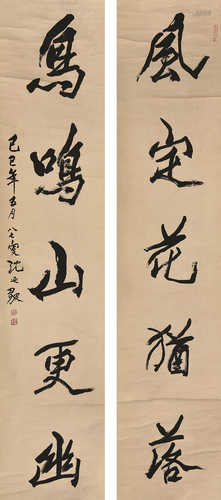 風定花猶落
鳥鳴山更幽
己巳年五月八七叟沈延毅